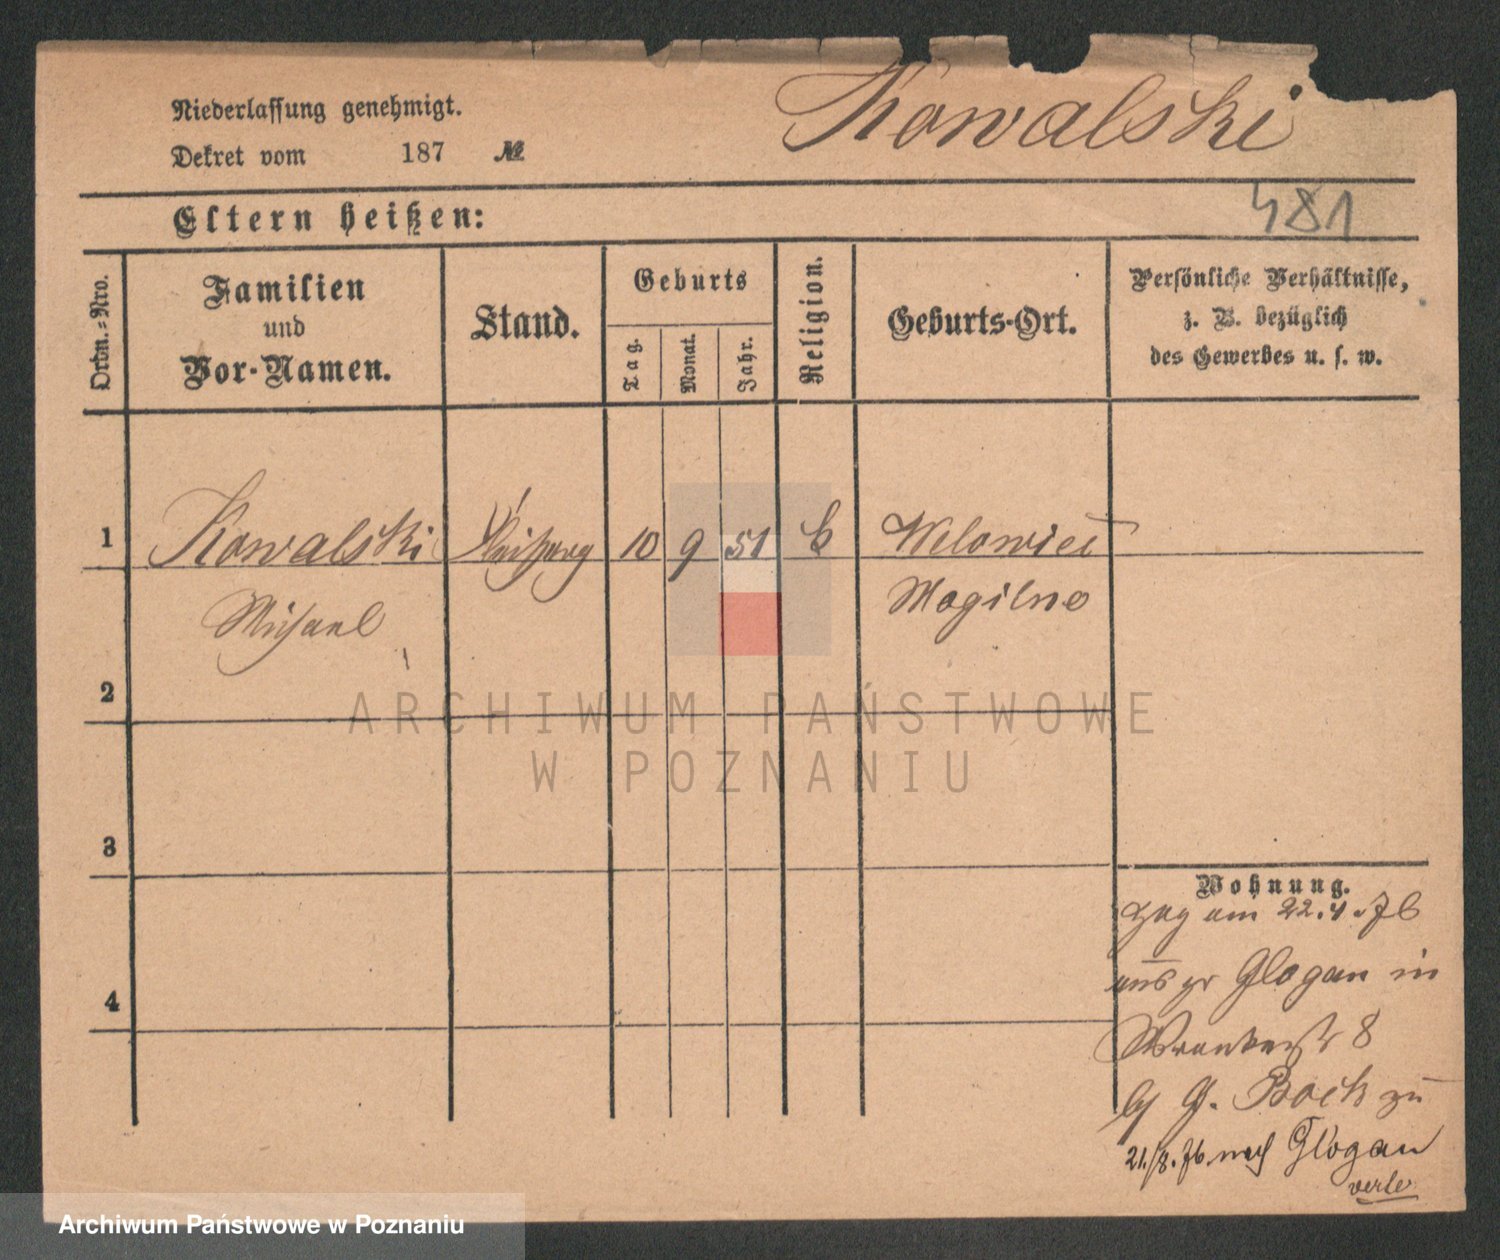 Niederlassung genehmigt.
Kowalski
Dekret vom 187 №
481
Eltern heißen:
Ordn.-Nro.
Familien
und
Vor-Namen.
Stand.
Geburts
Tag.
Monat.
Jahr.
Religion.
Geburts-Ort.
Persönliche Verhältnisse,
z. B. bezüglich
des Gewerbes u. s. w.
1 Kowalski 10 9 51 Welowiec
Michael Mogilno
2
3
4
Wohnung.
Zzg am 22.4.76
aus gr Glogau in
8
G. Bock zu
21./8.76 nach Glogau
ARCHIWUM PAŃSTWOWE
W POZNANIU
Archiwum Państwowe w Poznaniu